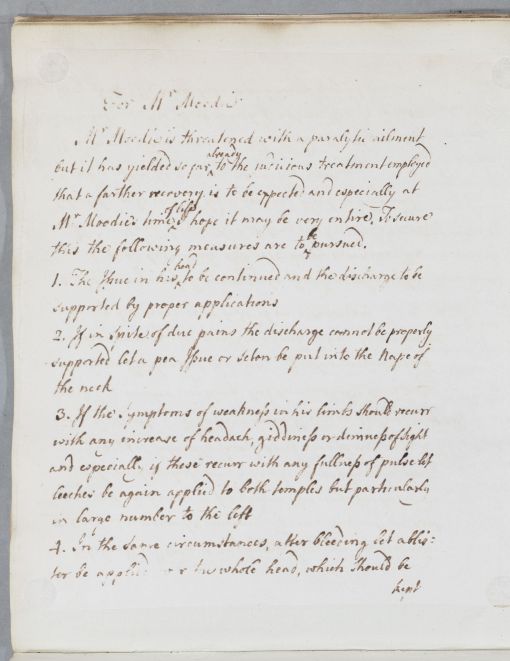 For Mr Moodie
Mr Moodie is threatened with a paralytic ailment
but it has yielded so far already to the judicious treatment employed
that a farther recovery is to be expected and especially at
Mr Moodies time of life I hope it may be very entire. To secure
this the following measures are to be pursued.
1. The Issue in his head to be continued and the discharge to be
supported by proper applications
2. If in spite of due pains the discharge cannot be properly
supported let a pea Issue or seton be put into the Nape of
the neck
3. If the symptoms of weakness in his limbs should recurr
with any increase of headach, giddiness or dimness of sight
and especially if these recurr with any fullness of pulse let
leeches be again applied to both temples but particularly
in large number to the left
4. In the same circumstances, after bleeding let a blis=
ter be applied whole head, which should be
kept